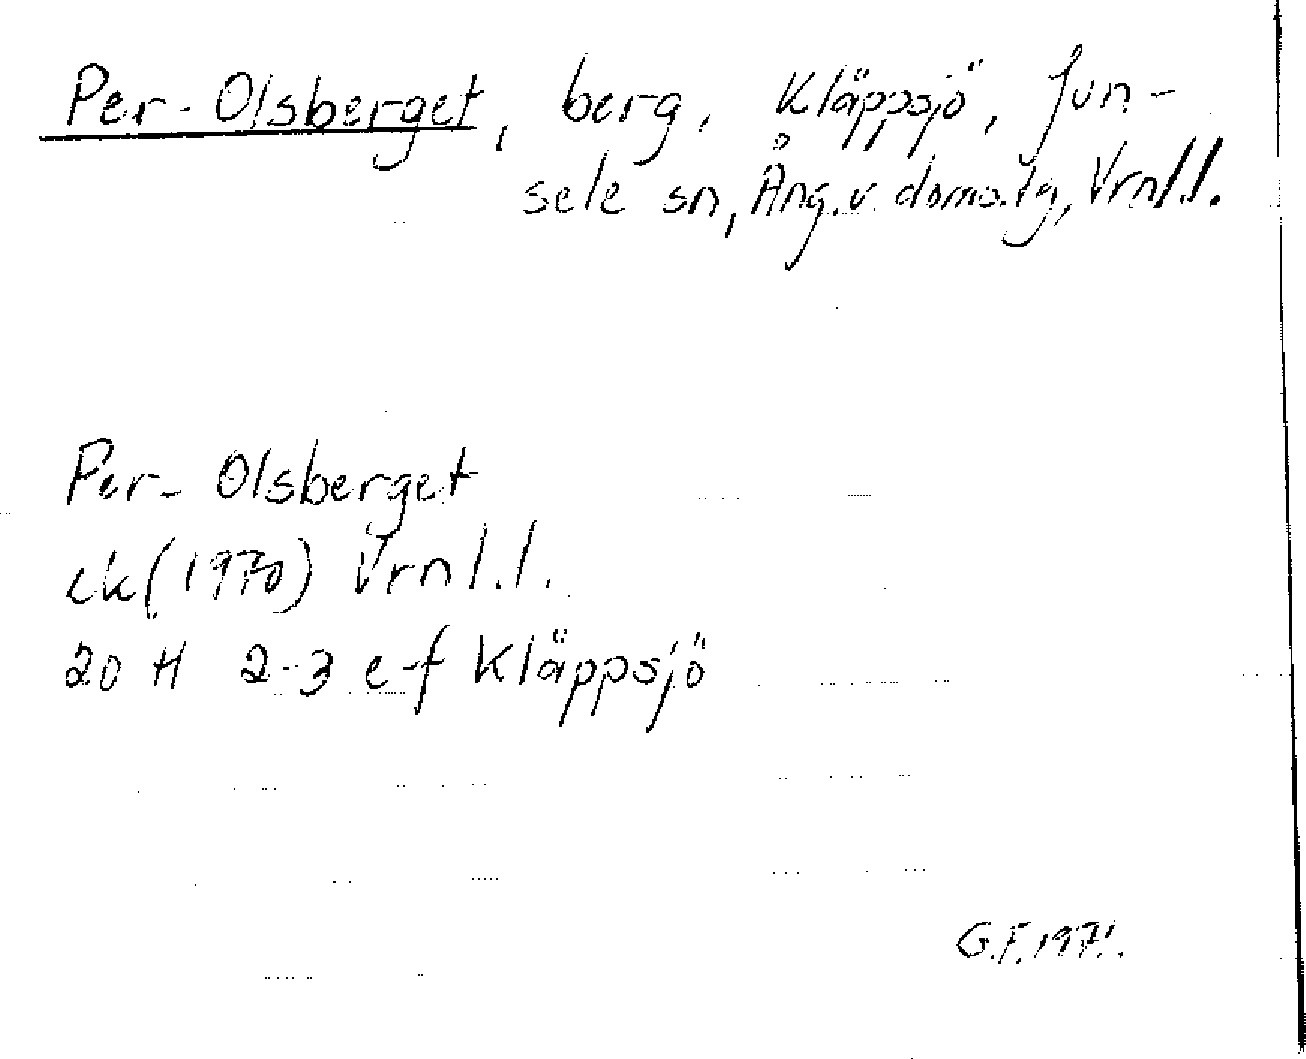 Per-Olsberget, berg, Kläppsjö, Jun-
sele sn, Ång.v. doms.lg, Vrnl.l.
Per-Olsberget
ek (1970) Vrnl.l.
20 H 2-3 e-f Kläppsjö
G.F. 1971.